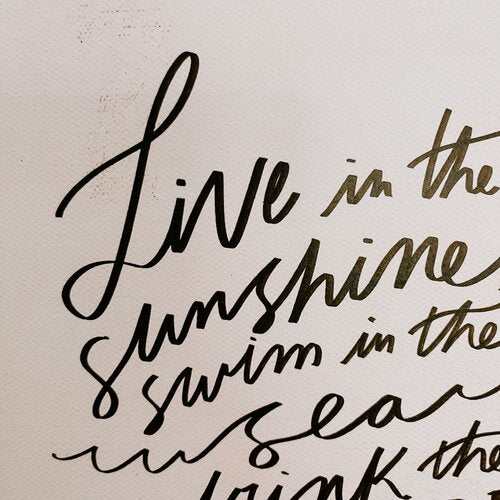 Live in the
sunshine,
swim in the
sea
drink the